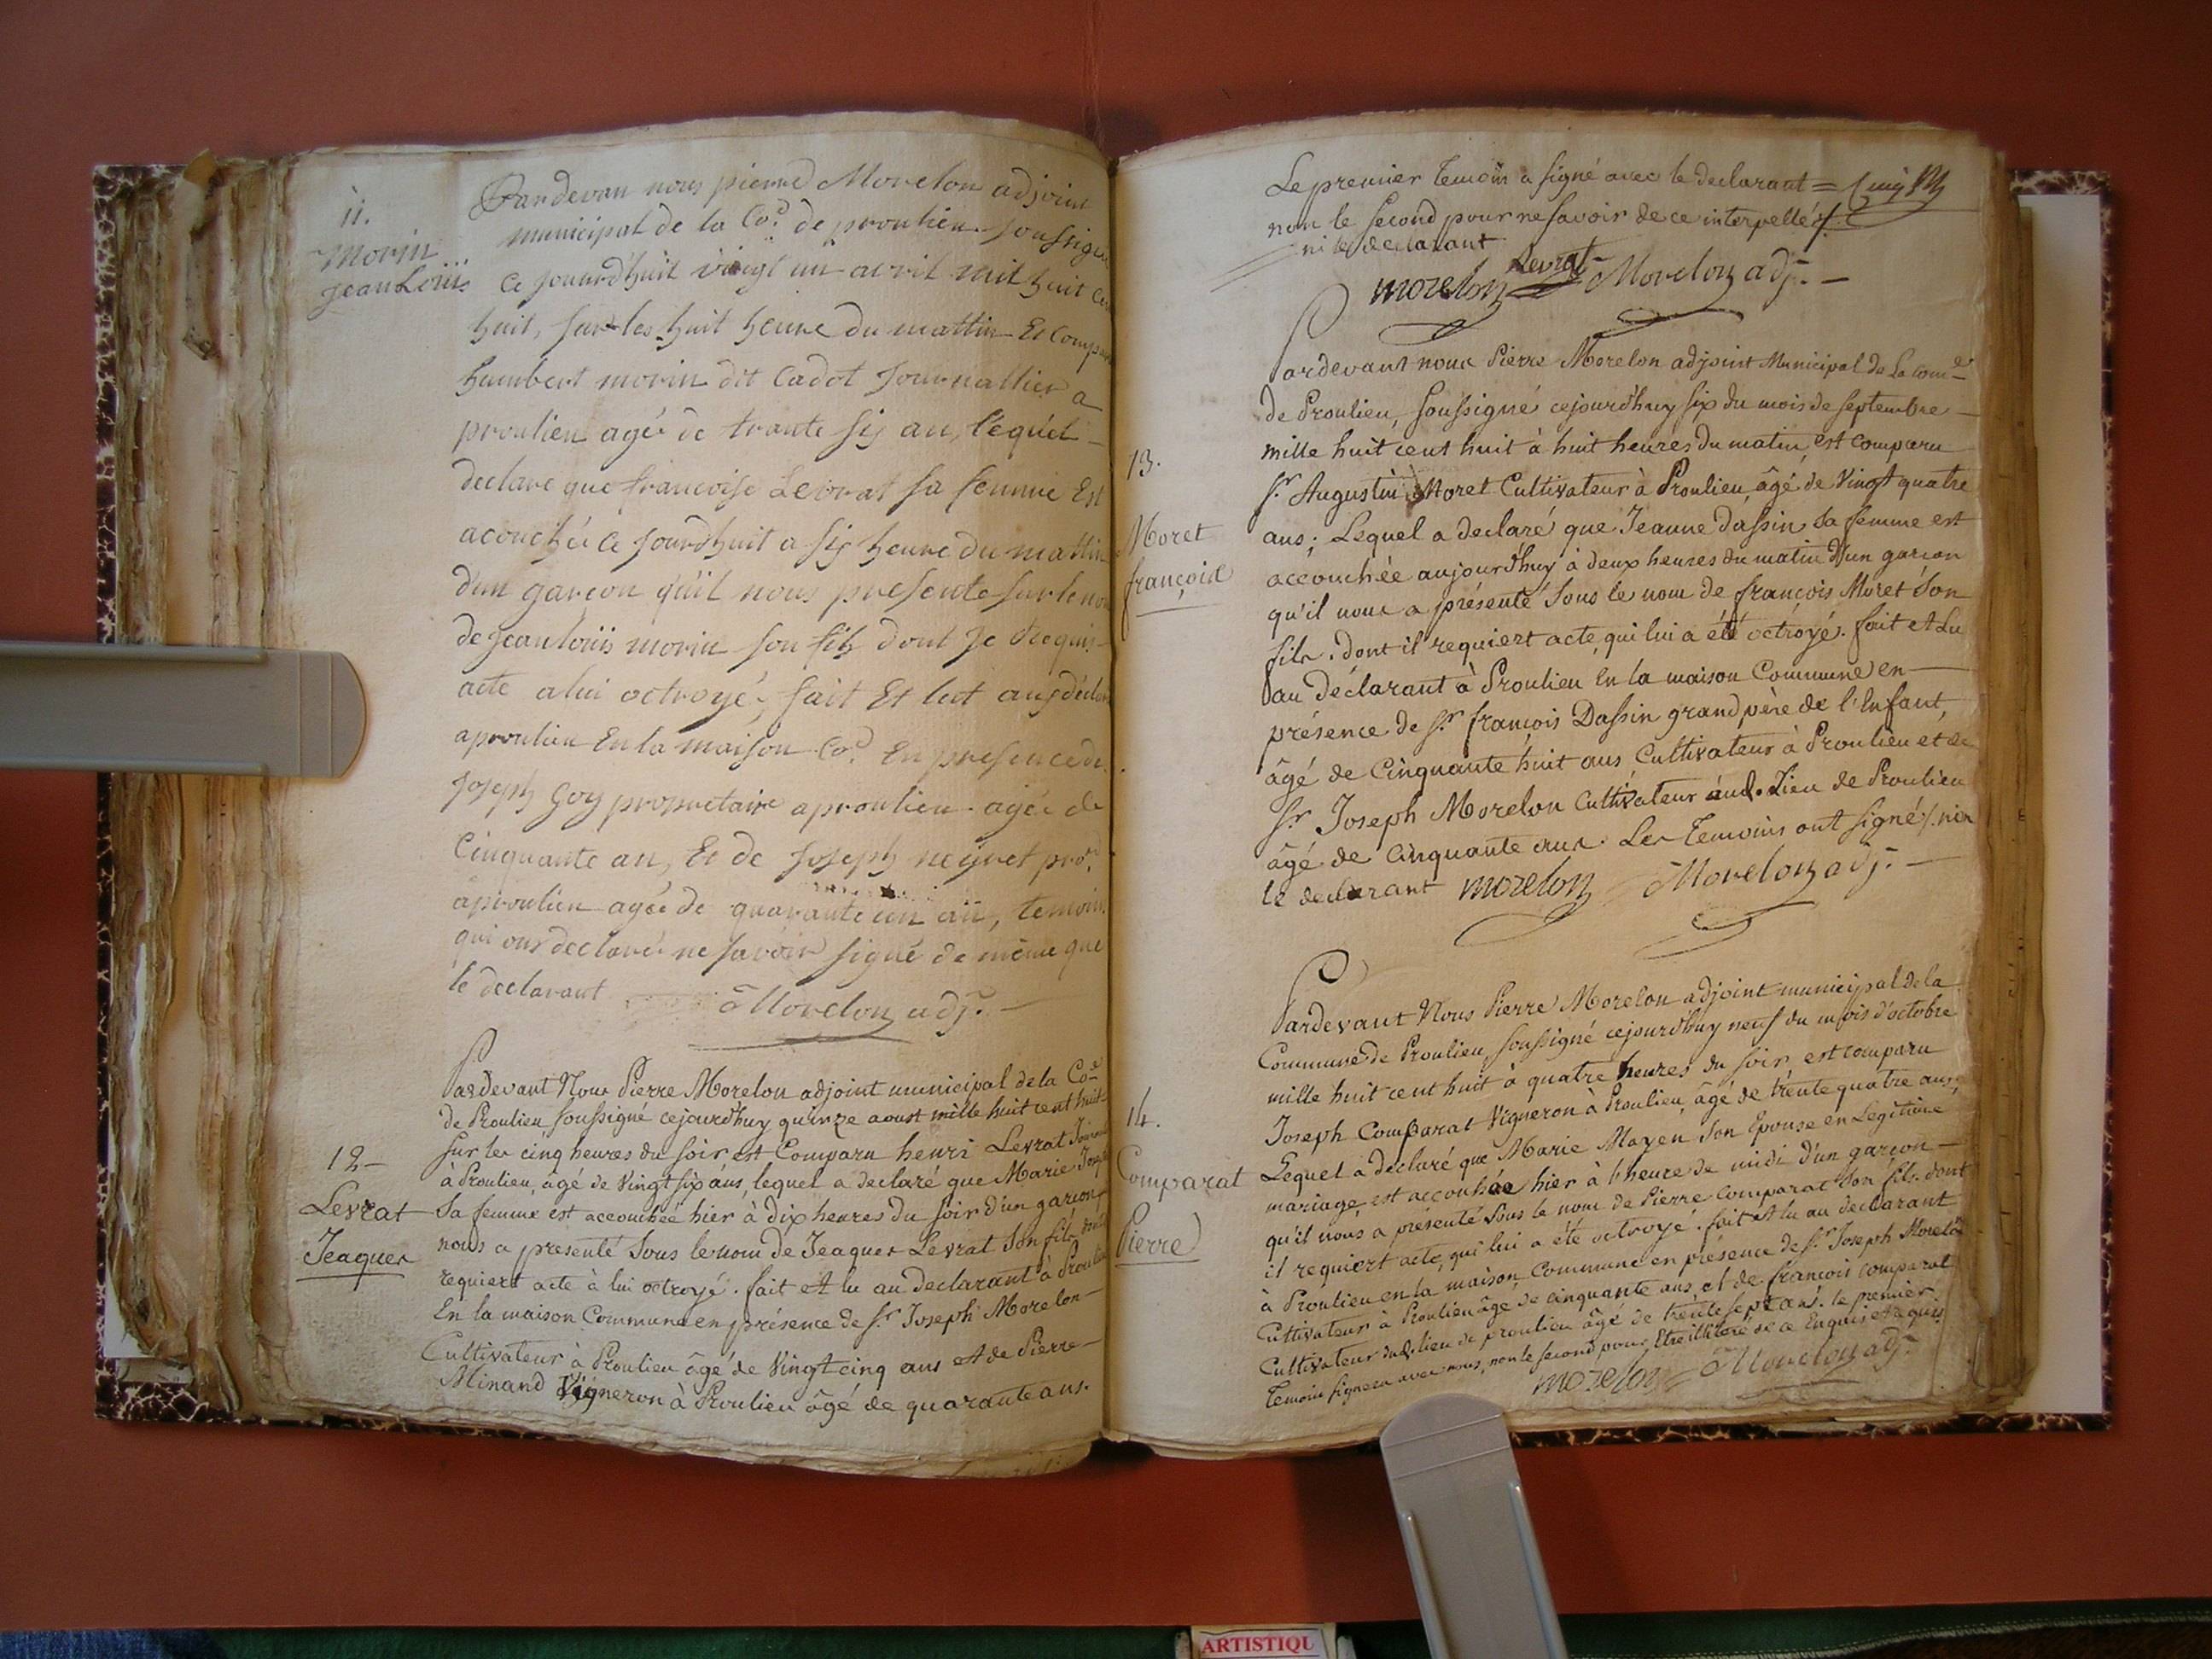 ii.
Morin
jean Loüis
Pardevan nous pierre Morelon adjoint
municipal de la Co.e de proulieu soussigné
Ce jourd'huit vingt un avril mil huit cen
huit, sur les huit heure du mattin Et Compa
humbert morin dit Cadot Journallier a
proulieu agé de trante six an, lequel
declare que francoise Levrat sa femme Est
acouchée ce jourd'huit a six heure du mattin
d'un garçon qu'il nous presente sur le nom
de jean loüis morin son fils dont Je Requis
acte a lui octroyé, fait Et lut aux déclar
a proulieu En la maison Co.e En presence de
Joseph Goy proprietaire a proulieu agée de
Cinquante an, Et de Joseph neyret pro.re
a proulieu agée de quarante un an, temoin
qui ons declaré ne savoir signé de même que
le declarant Morelon adj.
12
Levrat
Jeaques
Pardevant Nous Pierre Morelon adjoint municipal de la Co.e
de Proulieu soussigné cejourd'huy quinze aoust mille huit cent huit
sur les cinq heures du soir est Comparu henri Levrat
à Proulieu, âgé de Vingt six ans, lequel a declaré que Marie
Sa femme est accouchée hier à dix heures du soir d'un garçon
nous a presenté Sous le nom de Jeaques Levrat Son fils dont
requiert acte à lui octroyé. fait et lu au declarant à Proulieu
En la maison Commune en présence de S.r Joseph Morelon
Cultivateur à Proulieu âgé de Vingt cinq ans et de Pierre
Minand Vigneron à Proulieu âgé de quarante ans.
Le premier temoin a signé avec le declarant =
non le second pour ne savoir de ce interpellés/.
ni le declarant
morelon Levrat Morelon adj.
13.
Moret
françois
Pardevant nous Pierre Morelon adjoint Municipal de La com.e
de Proulieu, soussigné cejourd'huy six du mois de septembre
mille huit cent huit à huit heures du matin est comparu
S.r Augustin Moret Cultivateur à Proulieu, âgé de Vingt quatre
ans; Lequel a declaré que Jeanne Dassin sa femme est
accouchée aujourd'huy à deux heures du matin d'un garcon
qu'il nous a présenté Sous le nom de françois Moret Son
fils. dont il requiert acte, qui lui a été octroyé. fait et Lu
au déclarant à Proulieu En la maison Commune en
présence de S.r françois Dassin grand père de l'Enfant,
âgé de Cinquante huit ans Cultivateur à Proulieu et de
S.r Joseph Morelon Cultivateur aud. Lieu de Proulieu
âgé de Cinquante ans. Les Temoins ont signé/. non
le declarant morelon Morelon adj.
14.
Comparat
Pierre
Pardevant Nous Pierre Morelon adjoint municipal de la
Commune de Proulieu soussigné cejourd'huy neuf du mois d'octobre
mille huit cent huit à quatre heures du soir, est comparu
Joseph Comparat Vigneron à Proulieu, âgé de trente quatre ans,
Lequel a déclaré que Marie Mayen Son Epouse en Legitime
mariage, est accouchée hier à l'heure de midi d'un garçon
qu'il nous a présenté Sous le nom de Pierre Comparat Son fils. dont
il requiert acte, qui lui a été octroyé. fait et lu au declarant
à Proulieu en la maison Commune en présence de S.r Joseph Morelon
Cultivateur à Proulieu âge de cinquante ans, et de françois comparat
Cultivateur aud. lieu de proulieu âgé de trente sept ans. le premier
Temoin signera avec nous, non le second pour Etre illiteré de ce Enquis et requis
morelon Morelon adj.
ARTISTIQU